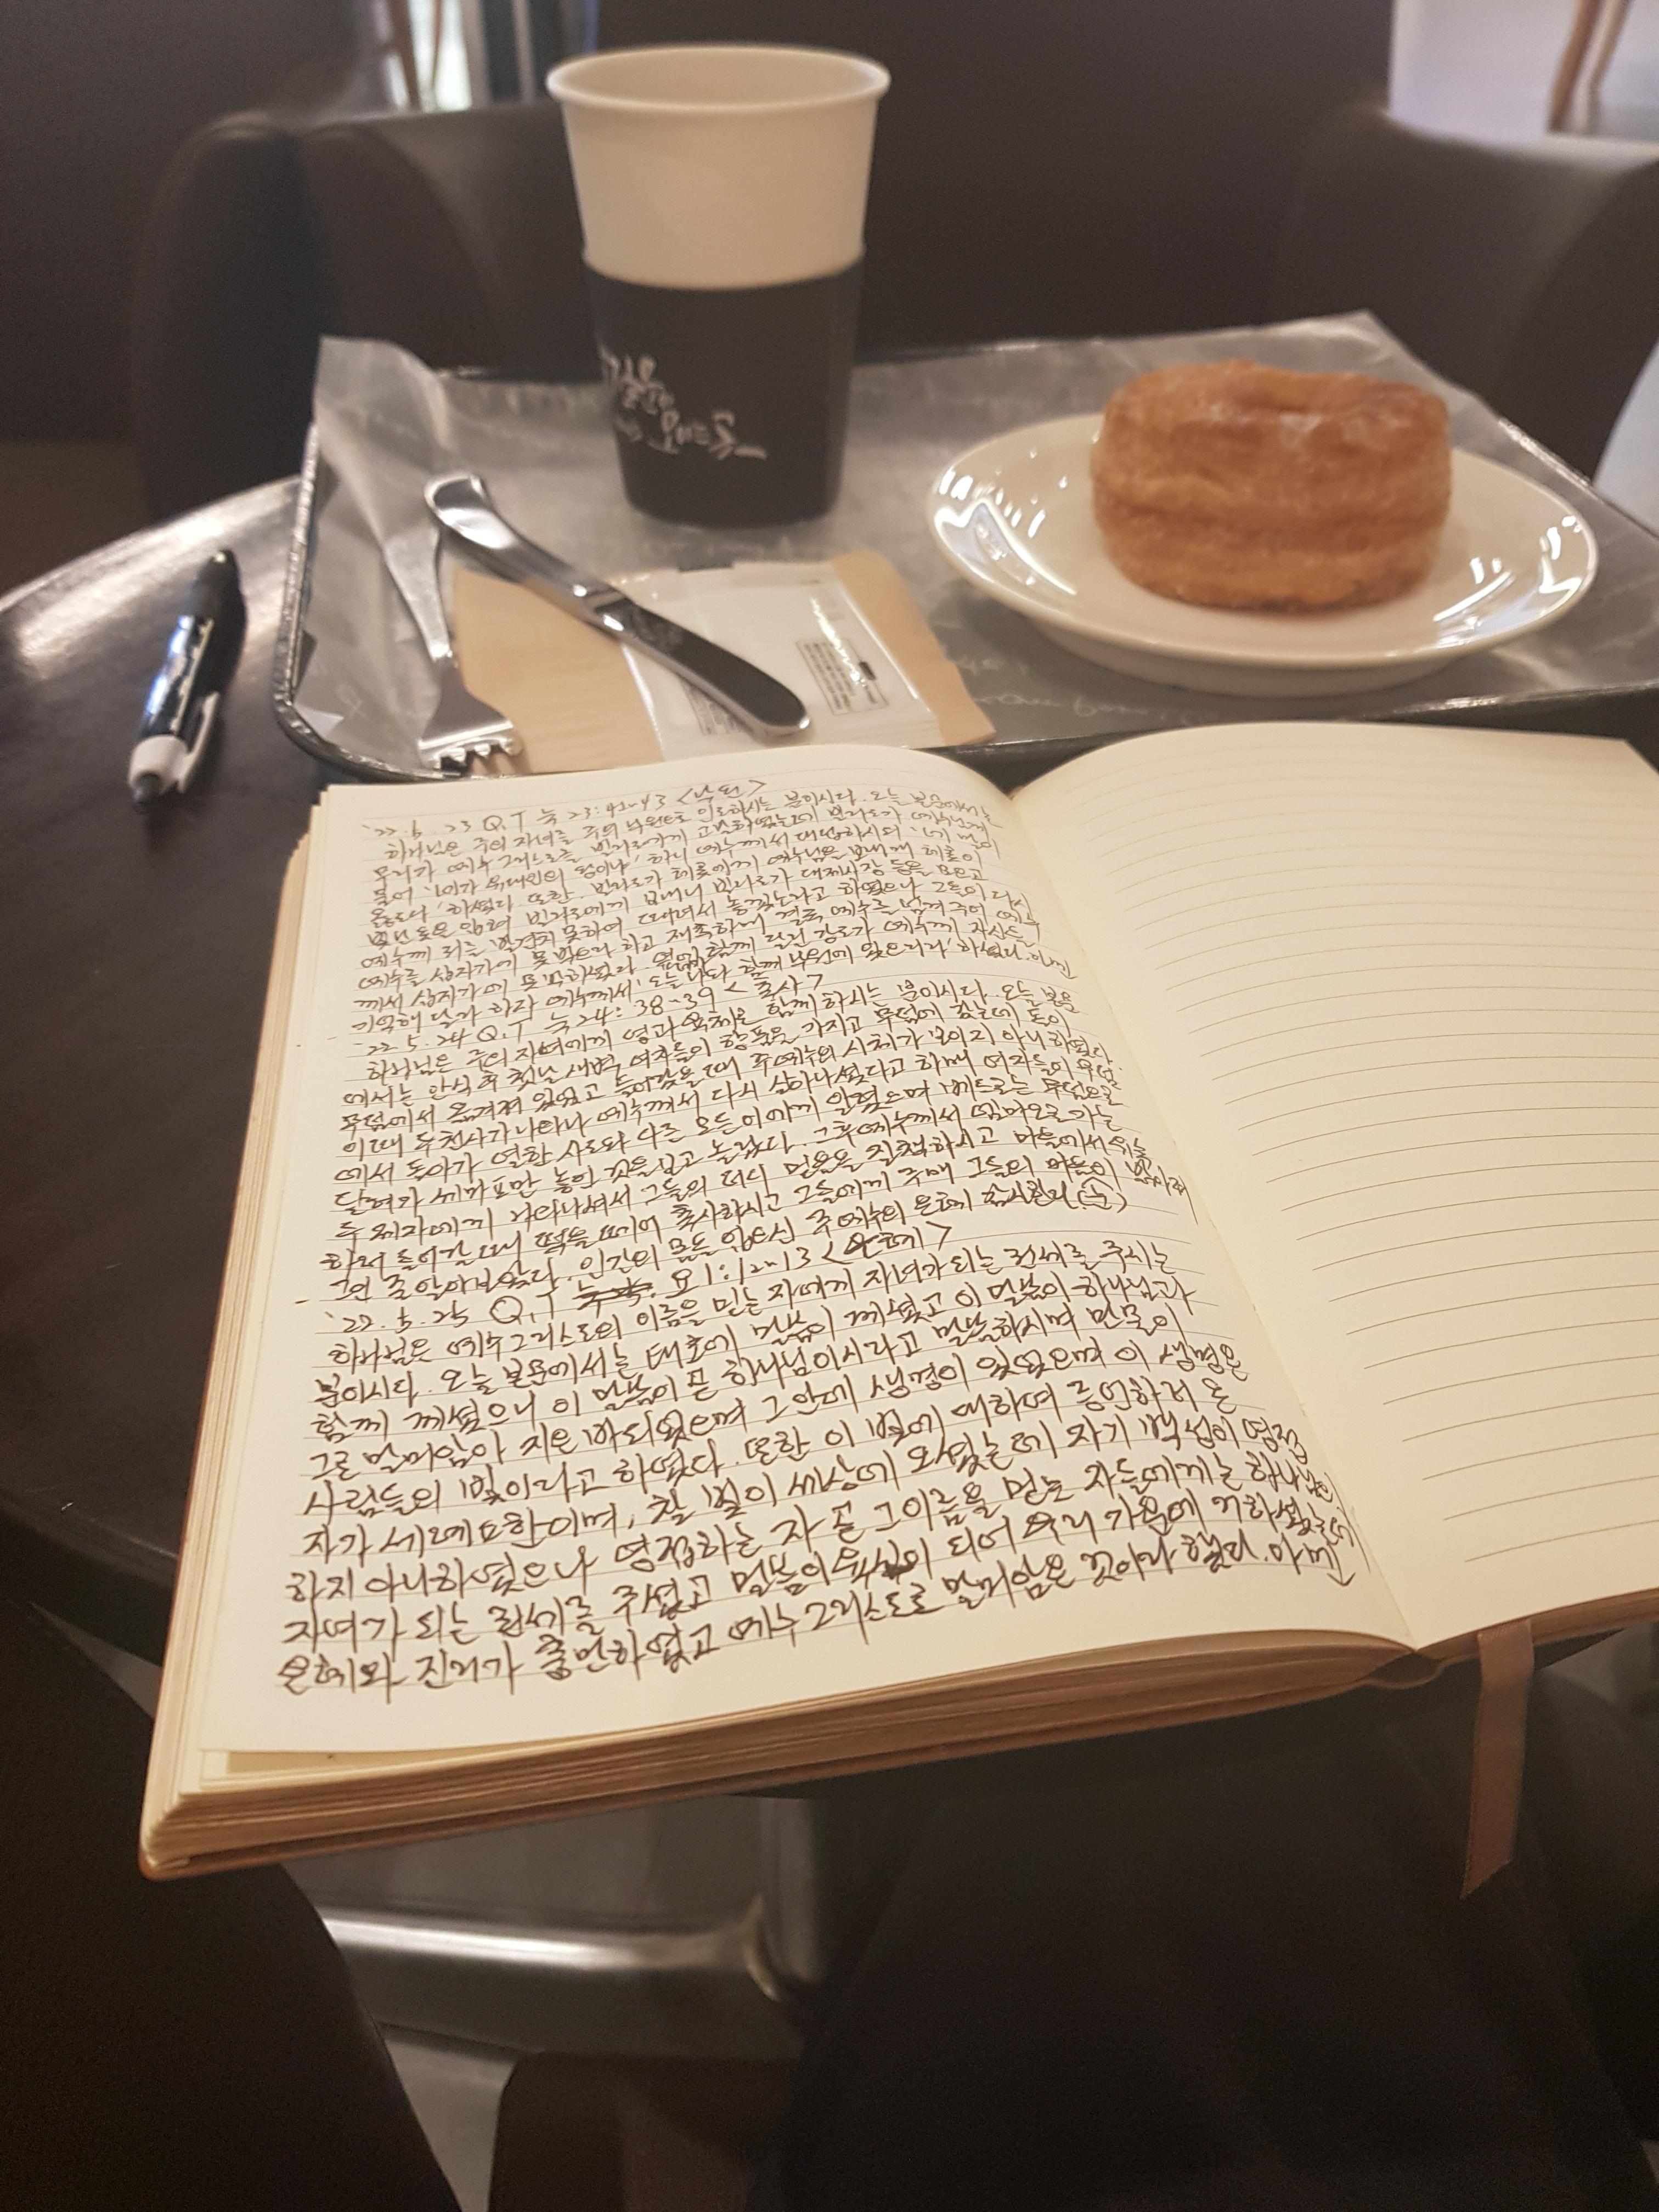 '22. 5. 23 Q.T 눅 23:42~43 <낙원>
하나님은 주의 자녀를 주의 낙원으로 인도하시는 분이시다. 오늘 본문에서는
무리가 예수 그리스도를 빌라도에게 고발하였는데 빌라도가 예수님께
물어 '네가 유대인의 왕이냐' 하니 예수께서 대답하시되 '네 말이
옳도다' 하셨다. 또한 빌라도가 헤롯에게 예수님을 보내매 헤롯이
빛난 옷을 입혀 빌라도에게 보내니 빌라도가 대제사장 등을 모으고
예수께 죄를 발견치 못하여 때려서 놓겠노라고 하였으나 그들이 다시
예수를 십자가에 못 박으라 하고 재촉하매 결국 예수를 넘겨주어 예수
께서 십자가에 못박히셨다. 함께 달린 강도가 예수께 자신을
기억해 달라 하자 예수께서 '오늘 나와 함께 낙원에 있으리라' 하셨다. 아멘
'22. 5. 24 Q.T 눅 24:38-39 <축사>
하나님은 주의 자녀에게 영과 육체로 함께 하시는 분이시다. 오늘 본문
에서는 안식 후 첫날 새벽 여자들이 향품을 가지고 무덤에 갔는데 돌이
무덤에서 옮겨져 있었고 들어갔을 때 주 예수의 시체가 보이지 아니하였다.
이때 두 천사가 나타나 예수께서 다시 살아나셨다고 하매 여자들이 무덤
에서 돌아가 열한 사도와 다른 모든 이에게 알렸으며 베드로는 무덤으로
달려가 세마포만 놓인 것을 보고 놀랐다. 그후 예수께서 엠마오로 가는
두 제자에게 나타나셔서 그들의 더디 믿음을 질책하시고 마을에서
하러 들어갈 때 떡을 떼어 축사하시고 그들에게 주매 그들의 눈이 밝아져
그인 줄 알아보았다. 인간의 몸을 입으신 주 예수의 은혜
'22. 5. 25 Q.T 요 1:12~13 <은혜>
하나님은 예수 그리스도의 이름을 믿는 자에게 자녀가 되는 권세를 주시는
분이시다. 오늘 본문에서는 태초에 말씀이 계셨고 이 말씀이 하나님과
함께 계셨으니 이 말씀이 곧 하나님이시라고 말씀하시며 만물이
그로 말미암아 지은 바 되었으며 그 안에 생명이 있었으며 이 생명은
사람들의 빛이라고 하였다. 또한 이 빛에 대하여 증언하러 온
자가 세례 요한이며, 참 빛이 세상에 오셨는데 자기 백성이 영접
하지 아니하였으나 영접하는 자 곧 그 이름을 믿는 자들에게는 하나님의
자녀가 되는 권세를 주셨고 말씀이 육신이 되어 우리 가운데 거하셨는데
은혜와 진리가 충만하였고 예수 그리스도로 말미암은 것이라 했다. 아멘